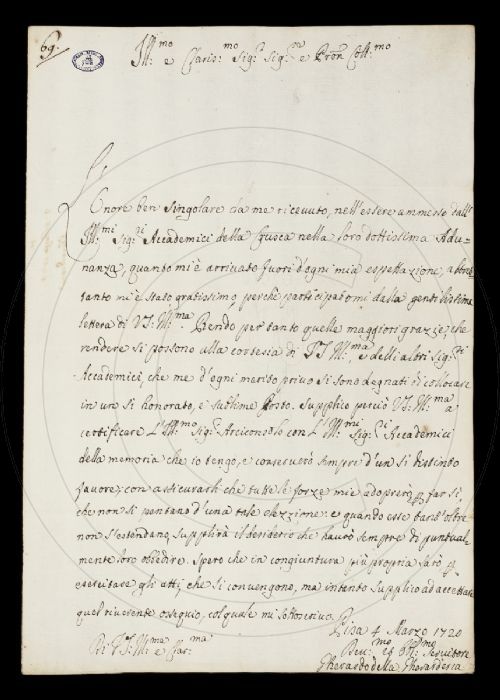 69.
Ill:mo e Clariss:mo Sig:r Sig:r e Pron Coll:mo
L'Onore ben singolare da me ricevuto, nell'essere ammesso dall'
Ill:mi Sig:ri Accademici della Crusca nella loro dottissima Adu=
nanza, quanto mi è arrivato fuori d'ogni mia espettazione, altret
tanto mi è stato gratissimo, perchè participatomi dalla gentilissima
lettera di V.S. Ill:ma. Rendo per tanto quelle maggiori grazie, che
rendere si possono alla cortesia di V.S. Ill:ma, e delli altri Sig:ri
Accademici, che me d'ogni merito privo si sono degnati di collocare
in un si honorato, e sublime Posto. Supplico perciò V.S. Ill:ma a
certificare l'Ill:mo Sig:r Arciconsolo con l'Ill:mi Sig:ri Accademici
della memoria che io tengo, e conserverò sempre d'un si distinto
favore; con assicurarli che tutte le forze mie adoprerò per far si,
che non si pentano d'una tale elezzione: e quando esse tant'oltre
non s'estendano, supplirà il desiderio che haurò sempre di puntual-
mente loro obbedire. Spero che in congiuntura più propria sarò per
esercitare gli atti, che si convengono, ma intanto supplico ad accettare
quel riverente ossequio, col quale mi sottoscrivo.
Pisa 4 Marzo 1720
Di V.S. Ill:ma e Clar:ma
Dev:mo ed Obl:mo Servitore
Gherardo della Gherardesca